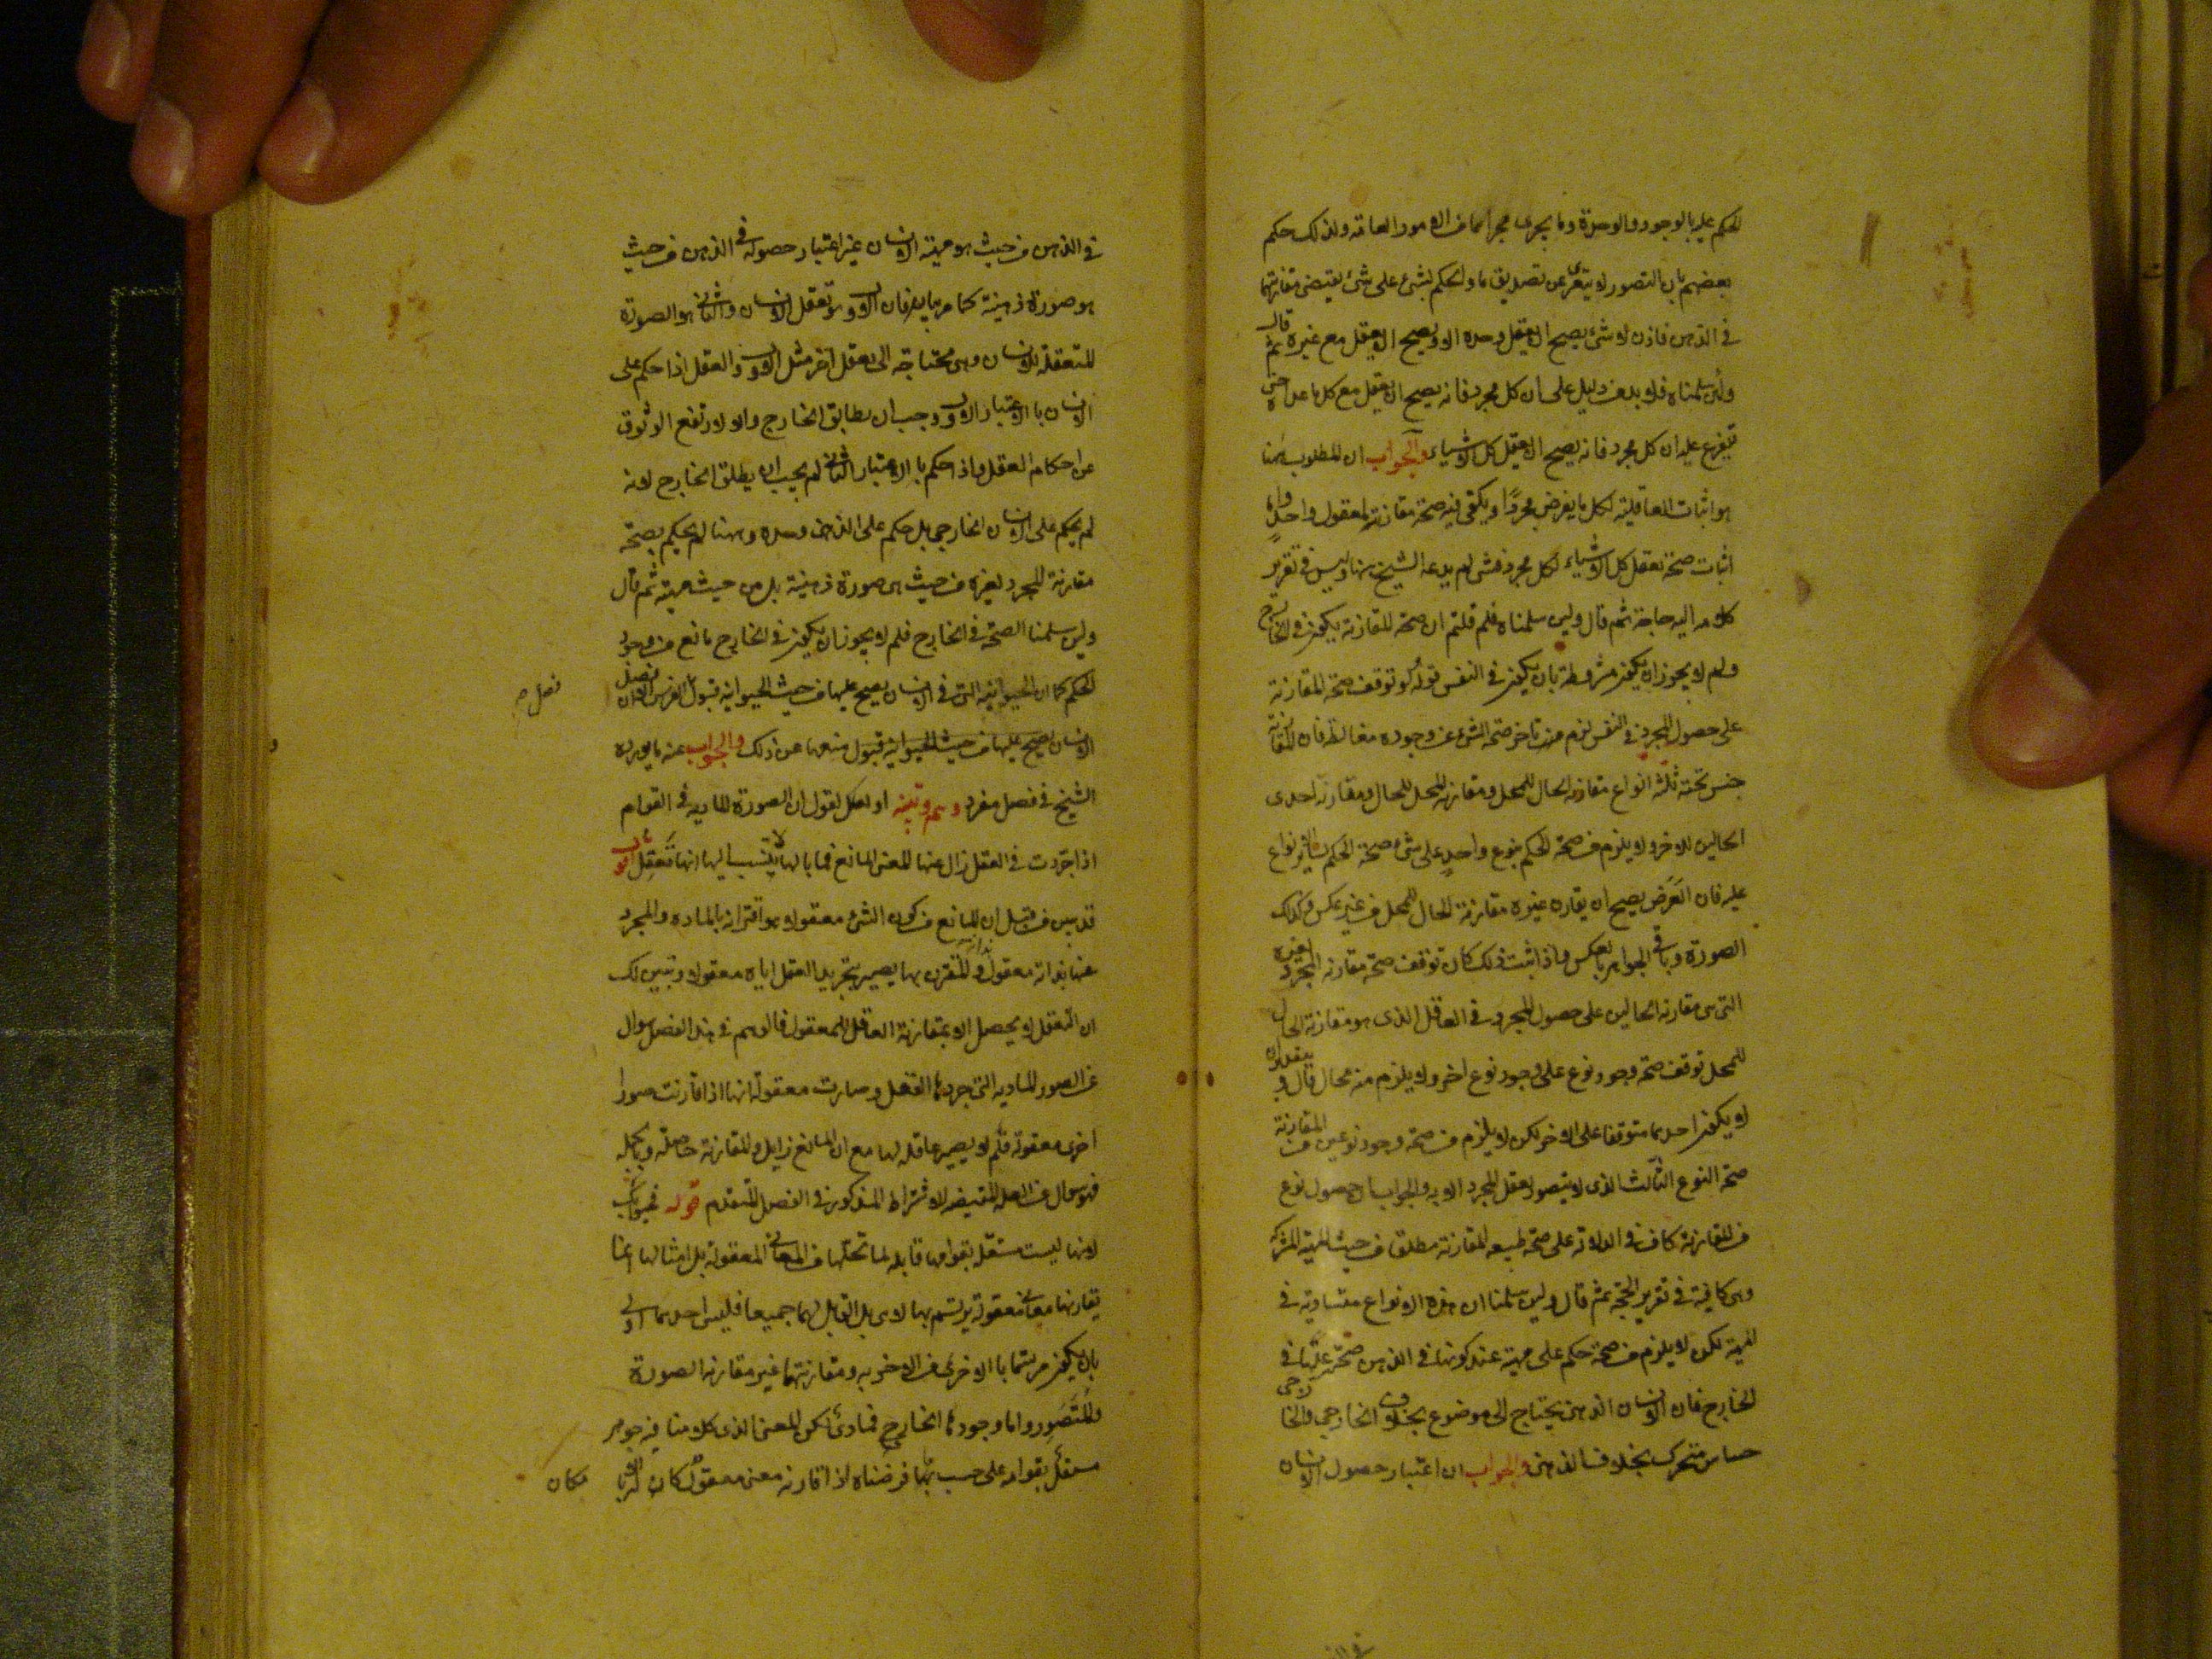 الحكم عليه بالوجود والوحدة وما يجرى مجراهما من الامور العامة ولذلك حكم
بعضهم بان التصور لا يتعرى عن تصديق ما والحكم بشئ على شئ يقتضى مقارنتهما
فى الذهن فاذن لا شئ يصح ان يعقل وحده الا ويصح ان يعقل مع غيره ثم قال
ولئن سلمناه فلا بد من دليل على ان كل مجرد فانه يصح ان يعقل مع كل ما عداه حتى
يتفرع عليه ان كل مجرد فانه يصح ان يعقل كل الاشياء والجواب ان المطلوب هنا
هو اثبات العاقلية لكل ما يفرض مجردا ويكفى فيه صحة مقارنته لمعقول واحد واما
اثبات صحة تعقل كل الاشياء لكل مجرد فشئ لم يدعه الشيخ هنا وليس فى تقرير
كلامه اليه حاجة ثم قال ولئن سلمناه فلم قلتم ان صحة المقارنة يكون فى الخارج
ولم لا يجوز ان يكون مشروطة بان يكون فى النفس قوله لو توقف صحة المقارنة
على حصول المجرد فى النفس لزم منه تاخر صحة الشئ عن وجوده مغالطة فان المقارنة
جنس تحته ثلثة انواع مقارنة الحال للمحل ومقارنة المحل للحال ومقارنة احدى
الحالين للاخر ولا يلزم من صحة الحكم بنوع واحد على شئ صحة الحكم بسائر الانواع
عليه فان العرض يصح ان يقارن غيره مقارنة الحال للمحل من غير عكس وكذلك
الصورة وباقى الجواهر بالعكس واذا ثبت ذلك كان توقف صحة مقارنة المجرد لغيره
التى هى مقارنة الحالين على حصول المجرد فى العاقل الذى هو مقارنة الحال
للمحل توقف صحة وجود نوع على وجود نوع اخر ولا يلزم منه محال قال و بتقدير ان
لا يكون احدهما متوقفا على الاخر لكن لا يلزم من صحة وجود نوعين من المقارنة
صحة النوع الثالث الذى لا يتصور تعقل المجرد الا به والجواب ان حصول نوع
من المقارنة كاف فى الدلالة على صحة طبيعة المقارنة مطلقا من حيث المهية المشتركة
وهى كافية فى تقرير الحجة ثم قال ولئن سلمنا ان هذه الانواع متساوية فى
المهية لكن لا يلزم من صحة حكم على مهية عند كونها فى الذهن صحته عليها فى
الخارج فان الانسان الذهنى يحتاج الى موضوع بخلاف الخارجى والخارجى
حساس متحرك بخلاف الذهنى والجواب ان اعتبار حصول الانسان
فى الذهن من حيث هو مهية الانسان غير اعتبار حصوله فى الذهن من حيث
هو صورة ذهنية كما مر بيانه فان الاول هو تعقل الانسان والثانى هو الصورة
المتعقلة للانسان وهى محتاجة الى تعقل اخر مثل الاول والعقل اذا حكم على
الانسان بالاعتبار الاول وجب ان يطابق الخارج والا لارتفع الوثوق
عن احكام العقل واذا حكم بالاعتبار الثانى لم يجب ان يطابق الخارج لانه
لم يحكم على الانسان الخارجى بل حكم على الذهنى وحده وههنا لم يحكم بصحة
مقارنة المجرد لغيره من حيث هى صورة ذهنية بل من حيث مهيته ثم قال
ولئن سلمنا الصحة فى الخارج فلم لا يجوز ان يكون فى الخارج مانع من وجود
الحكم كما ان الحيوانية التى فى الانسان يصح عليها من حيث الحيوانية قبول فصل الفرس الا ان
فصل صح
الانسان يصح عليها من حيث الحيوانية قبول منعها عن ذلك والجواب عنه ما يورده
الشيخ فى فصل مفرد وهم وتنبيه او لعلك تقول ان الصورة المادية فى القوام
اذا جردت فى العقل زال عنها المعنى المانع فما بالها لا ينسب اليها انها تعقل اقول
قد تبين من قبل ان المانع من كون الشئ معقولا هو اقترانه بالمادة والمجرد
عنها بذاته معقول لذاته والمقترن بها يصير بتجريد العقل اياه معقولا وتبين لك
ان التعقل لا يحصل الا بمقارنة العاقل للمعقول فالوهم فى هذا الفصل سوال
عن الصور المادية التى جردها العقل وصارت معقولة انها اذا قارنت صورا
اخرى معقولة فلم لا يصير عاقلة لها مع ان المانع زايل والمقارنة حاصلة وبالجملة
فهو سوال عن العلة المقتضية للاشتراط المذكور فى الفصل المتقدم قوله فجوابك
لانها ليست مستقلة بقوامها قابلة لما تحلها من المعانى المعقولة بل امثالها انما
تقارنها معان معقولة يرتسم بها لا هى بل القابل لهما جميعا فليس احدهما اولى
بان يكون مرتسما بالاخرى من الاخر به ومقارنتهما غير مقارنة الصورة
والمتصور واما وجودها الخارج فمادى لكن المعنى الذى كلامنا فيه جوهر
مستقل بقوامه على حسب ما فرضناه اذا قارنه معنى معقول كان
مكان